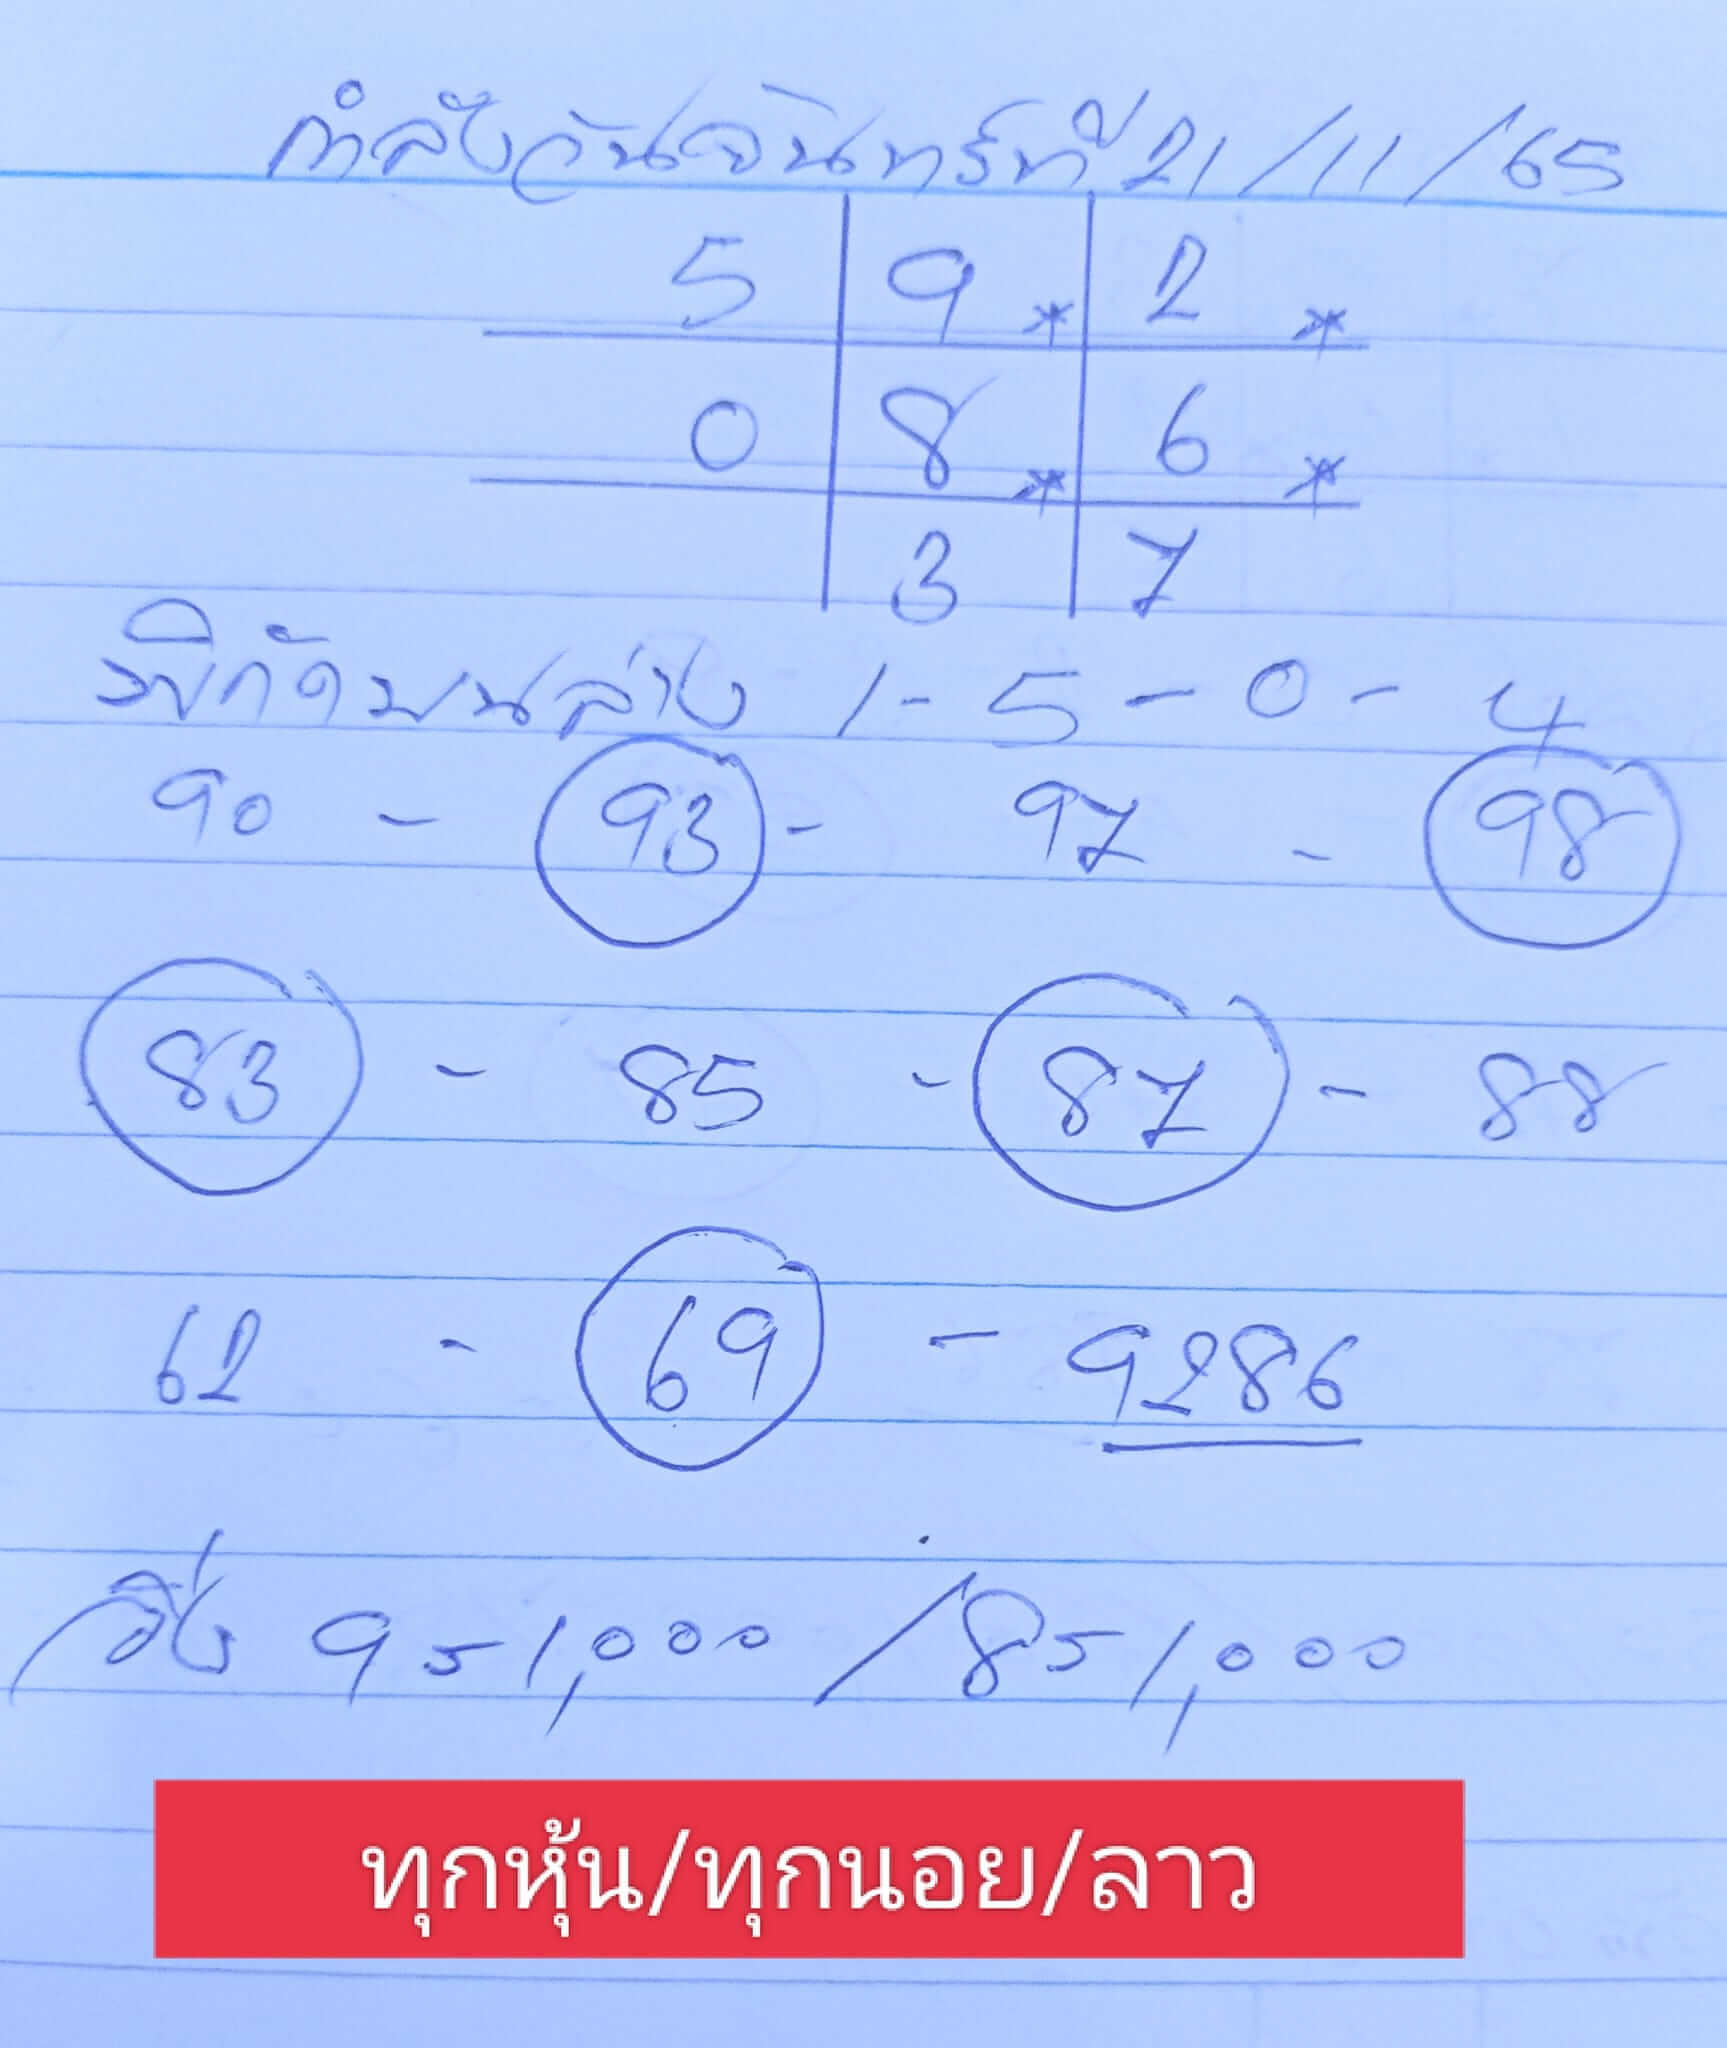 กำลังวันจันทร์ที่ 21/11/65
5 9* 2*
0 8* 6*
3 7
พิกัดบนล่าง 1-5-0-4
90 - 93 - 97 - 98
83 - 85 - 87 - 88
62 - 69 - 9286
วิ่ง 9=1,000 /8=1,000
ทุกหุ้น/ทุกนอย/ลาว